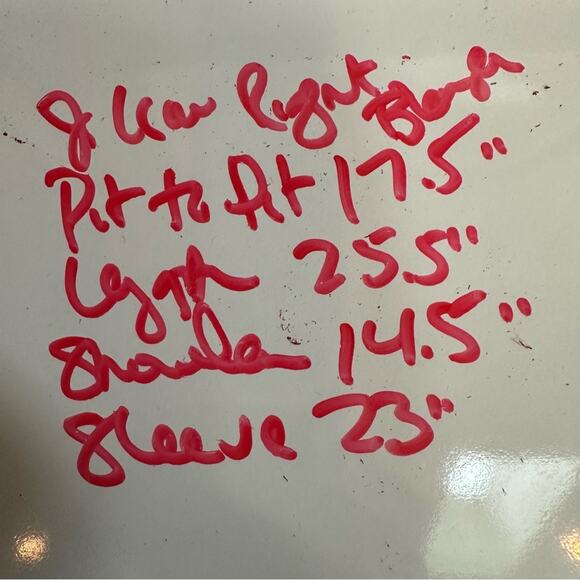 J. Crew Light Blazer
Pit to Pit 17.5"
Length 25.5"
Shoulder 14.5"
Sleeve 23"